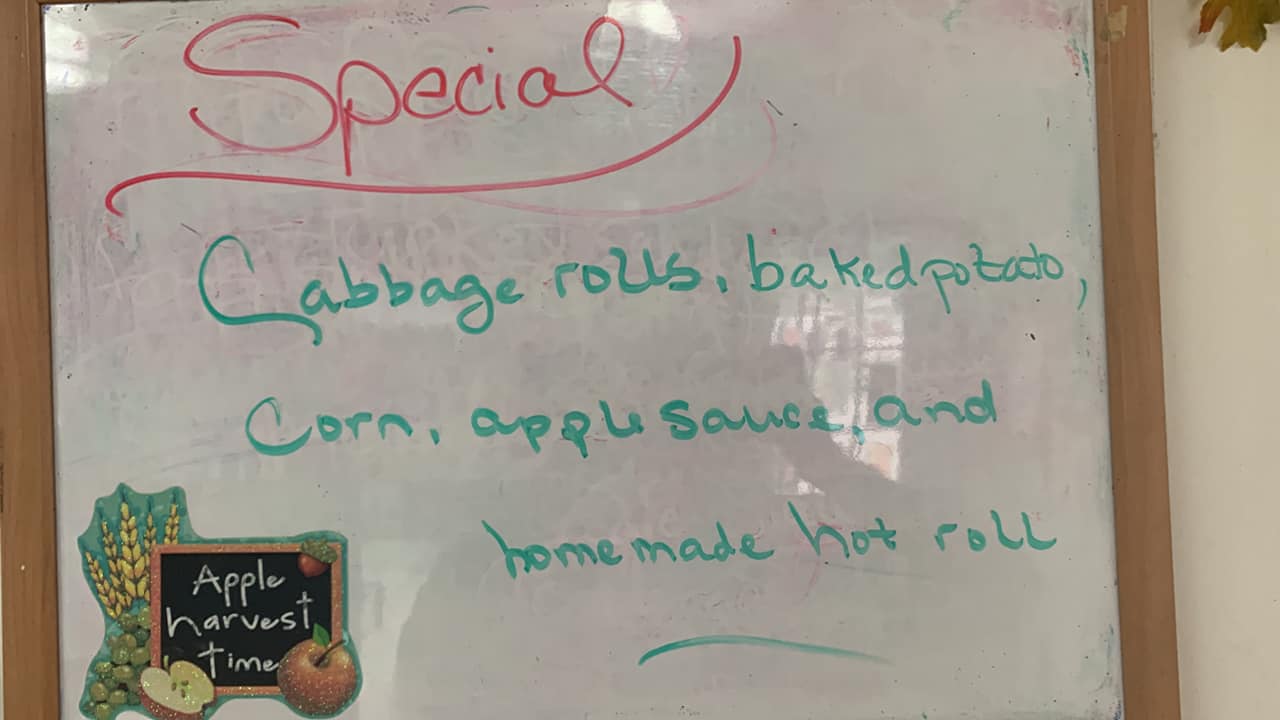 Special
Cabbage rolls, baked potato,
Corn, apple sauce, and
homemade hot roll
Apple
harvest
time